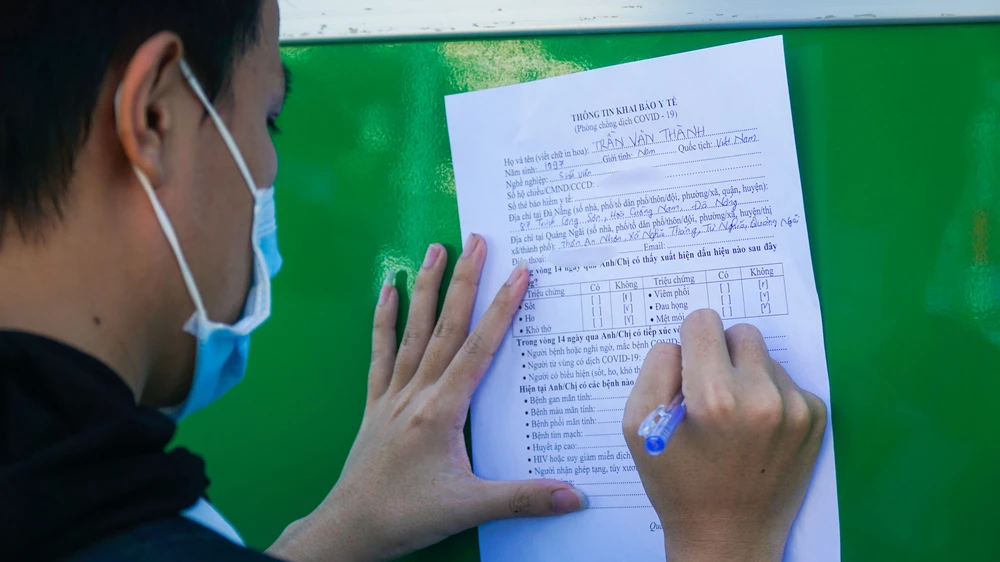 THÔNG TIN KHAI BÁO Y TẾ
(Phòng chống dịch COVID - 19)
Họ và tên (viết chữ in hoa): TRẦN VĂN THÀNH
Năm sinh: 1997 Giới tính: Nam Quốc tịch: Việt Nam
Nghề nghiệp: Sinh viên
Số hộ chiếu/CMND/CCCD:
Số thẻ bảo hiểm y tế:
Địa chỉ tại Đà Nẵng (số nhà, phố/tổ dân phố/thôn/đội, phường/xã, quận, huyện):
87 Trịnh Công Sơn, Hòa Cường Nam, Đà Nẵng
Địa chỉ tại Quảng Ngãi (số nhà, phố/tổ dân phố/thôn/đội, phường/xã, huyện/thị
xã/thành phố): Thôn An Nhơn, Xã Nghĩa Thắng, Tư Nghĩa, Quảng Ngãi
thoại: Email:
vòng 14 ngày qua Anh/Chị có thấy xuất hiện dấu hiệu nào sau đây
Triệu chứng Có Không Triệu chứng Có Không
• Sốt [ ] [v] • Viêm phổi [ ] [v]
• Ho [ ] [v] • Đau họng [ ] [v]
• Khó thở [ ] [v] • Mệt mỏi [ ] [v]
Trong vòng 14 ngày qua Anh/Chị có tiếp xúc
• Người bệnh hoặc nghi ngờ, mắc bệnh COVID
• Người từ vùng có dịch COVID-19:
• Người có biểu hiện (sốt, ho, khó
Hiện tại Anh/Chị có các bệnh nào
• Bệnh gan mãn tính:
• Bệnh máu mãn tính:
• Bệnh phổi mãn tính:
• Bệnh tim mạch:
• Huyết áp cao:
• HIV hoặc suy giảm miễn dịch
• Người nhận ghép tạng, tủy